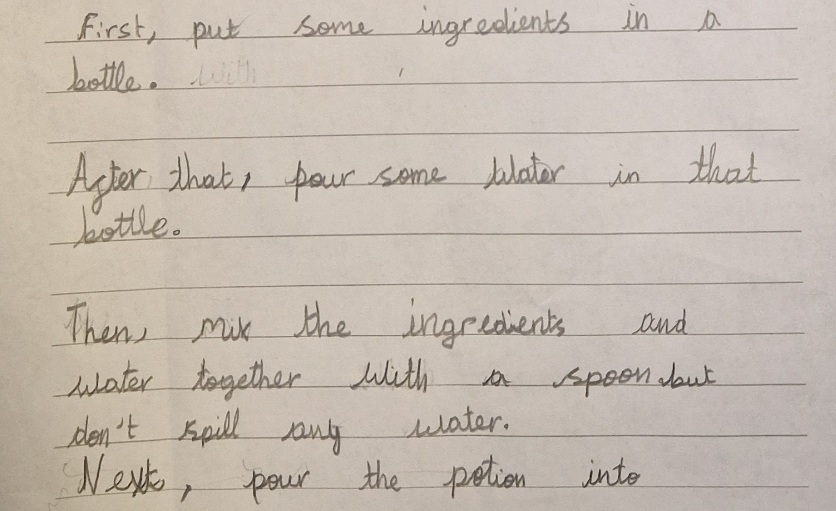 First, put some ingredients in a
bottle. with
After that, pour some water in that
bottle.
Then, mix the ingredients and
water together with a spoon but
don't spill any water.
Next, pour the potion into